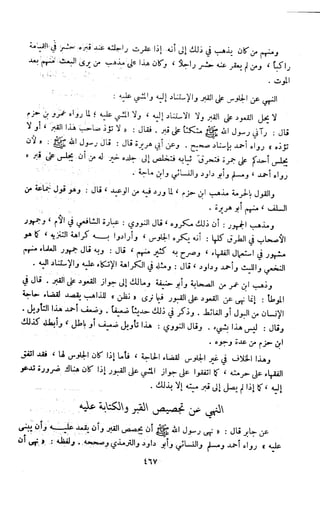 ومنهم من كان يذهب في ذلك إلى أنه إذا عقرت راحلته عند قبره حشر في القيامة
راكباً ، ومن لم يعقر عنه حشر راجلاً ، وكان هذا على مذهب من يرى البعث منهم بعد
الموت .
النهي عن الجلوس على القبر والاستناد إليه والمشي عليه :
لا يحل القعود على القبر ولا الاستناد إليه ، ولا المشي عليه ؛ لما رواه عمرو بن حزم
قال : رآني رسول الله ﷺ متكئاً على قبر . فقال : « لا تؤذ صاحب هذا القبر ، أو لا
تؤذه » رواه أحمد بإسناد صحيح . وعن أبي هريرة قال : قال رسول الله ﷺ : « لأن
يجلس أحدكم على جمرة فتحرق ثيابه فتخلص إلى جلده خير له من أن يجلس على قبر »
رواه أحمد ، ومسلم وأبو داود والنسائي وابن ماجة .
والقول بالحرمة مذهب ابن حزم ، لما ورد فيه من الوعيد ، قال : وهو قول جماعة من
السلف ، منهم أبو هريرة .
ومذهب الجمهور : أن ذلك مكروه ، قال النووي : عبارة الشافعي في الأم ، وجمهور
الأصحاب في الطرق كلها : أنه يكره الجلوس ، وأرادوا به كراهة التنزيه ، كما هو
مشهور في استعمال الفقهاء ، وصرح به كثير منهم ، قال : وبه قال جمهور العلماء منهم
النخعي والليث وأحمد وداود ، قال : ومثله في الكراهة الاتكاء عليه والاستناد إليه .
وذهب ابن عمر من الصحابة وأبو حنيفة ومالك إلى جواز القعود على القبر . قال في
الموطأ : إنما نهي عن القعود على القبور فيما نرى « نظن » للذاهب يقصد لقضاء حاجة
الإنسان من البول أو الغائط . وذكر في ذلك حديثاً ضعيفاً . وضعف أحمد هذا التأويل .
وقال : ليس هذا بشيء . وقال النووي : هذا تأويل ضعيف أو باطل ، وأبطله كذلك
ابن حزم من عدة وجوه .
وهذا الخلاف في غير الجلوس لقضاء الحاجة ، فأما إذا كان الجلوس لها ، فقد اتفق
الفقهاء على حرمته ، كما اتفقوا على جواز المشي على القبور إذا كان هناك ضرورة تدعو
إليه ، كما إذا لم يصل إلى قبر ميته إلا بذلك .
النهي عن تجصيص القبر والكتابة عليه
عن جابر قال : « نهى رسول الله ﷺ أن يجصص القبر وأن يقعد عليه وأن يبنى
عليه » رواه أحمد ومسلم والنسائي وأبو داود والترمذي وصححه . ولفظه : « نهى أن
٤٦٧